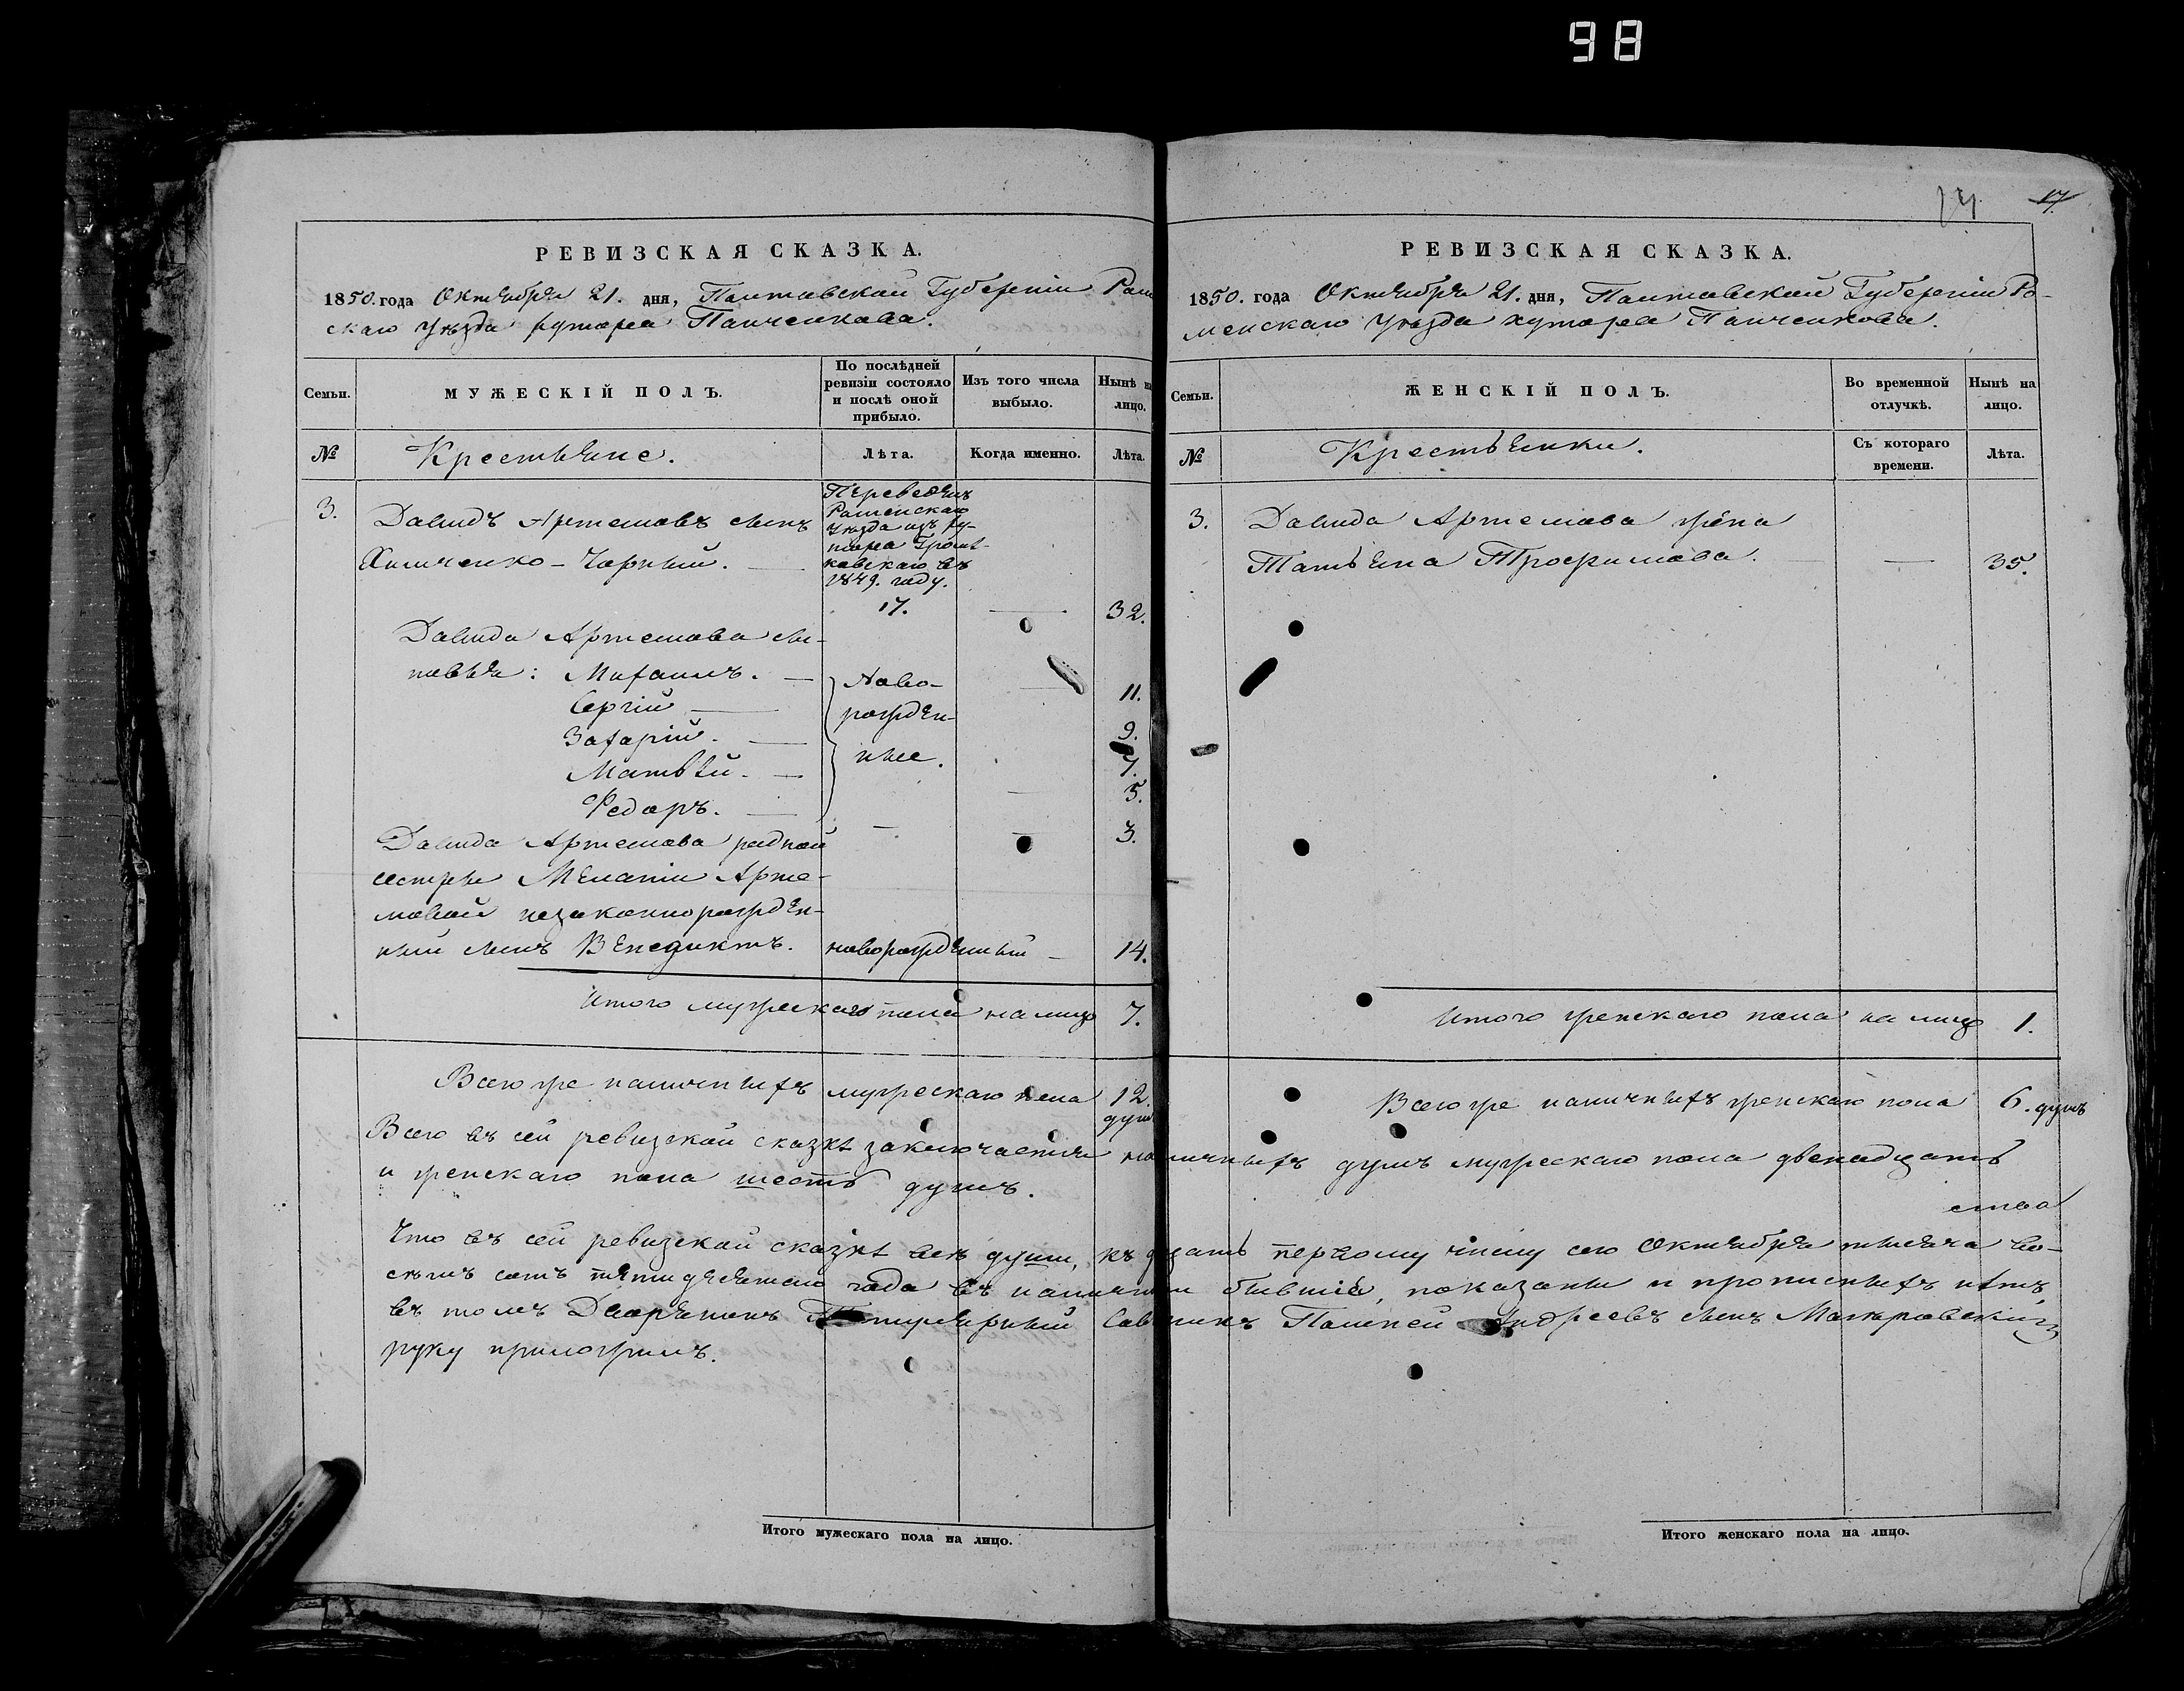 98
17.
РЕВИЗСКАЯ СКАЗКА.
1850. года Октября 21. дня, Полтавской Губерніи Ром
скаго Уѣзда хутора Панченкова.
Семьи.
МУЖЕСКІЙ ПОЛЪ.
По послѣдней
ревизіи состояло
и послѣ оной
прибыло.
Изъ того числа
выбыло.
Нынѣ на
лицо.
№
Крестьяне.
Лѣта.
Когда именно.
Лѣта.
3.
Давидъ Артемовъ сынъ
Химченко-Чорный.
Переведенъ
Роменскаго
Уѣзда изъ ху-
тора
ковскаго въ
1849. году.
17.
32.
Давида Артемова сы-
новья: Михаилъ.
11.
Сергій
9.
Захарій.
7.
Матвѣй.
5.
Федоръ.
3.
Ново-
рожден-
ные.
Давида Артемова родной
сестры Меланіи Арте-
мовой незаконнорожден-
ный сынъ Венедиктъ. новорожденный 14.
Итого мужескаго пола на лицо 7.
Всего же наличныхъ мужескаго пола 12.
душ
РЕВИЗСКАЯ СКАЗКА.
1850. года Октября 21. дня, Полтавской Губерніи Ро-
менскаго Уѣзда хутора Панченкова.
Семьи.
ЖЕНСКІЙ ПОЛЪ.
Во временной
отлучкѣ.
Нынѣ на
лицо.
№
Крестьянки.
Съ котораго
времени.
Лѣта.
3.
Давида Артемова жена
Татьяна Трофимова. 35.
Итого женскаго пола на лицо 1.
Всего же наличныхъ женскаго пола 6. душъ
Всего въ сей ревизской сказкѣ заключается наличныхъ душъ мужескаго пола двенадцать
и женскаго пола шесть душъ.
Что въ сей ревизской сказкѣ всѣ души, къ двадцать первому числу сего Октября тысяча во-
семъ сотъ пятидесятого года въ наличіи бывшіе, показаны и прописныхъ нѣтъ,
въ томъ Дворянинъ Титулярный Совѣтникъ Андреевъ сынъ
руку приложилъ.
Итого мужескаго пола на лицо.
Итого женскаго пола на лицо.